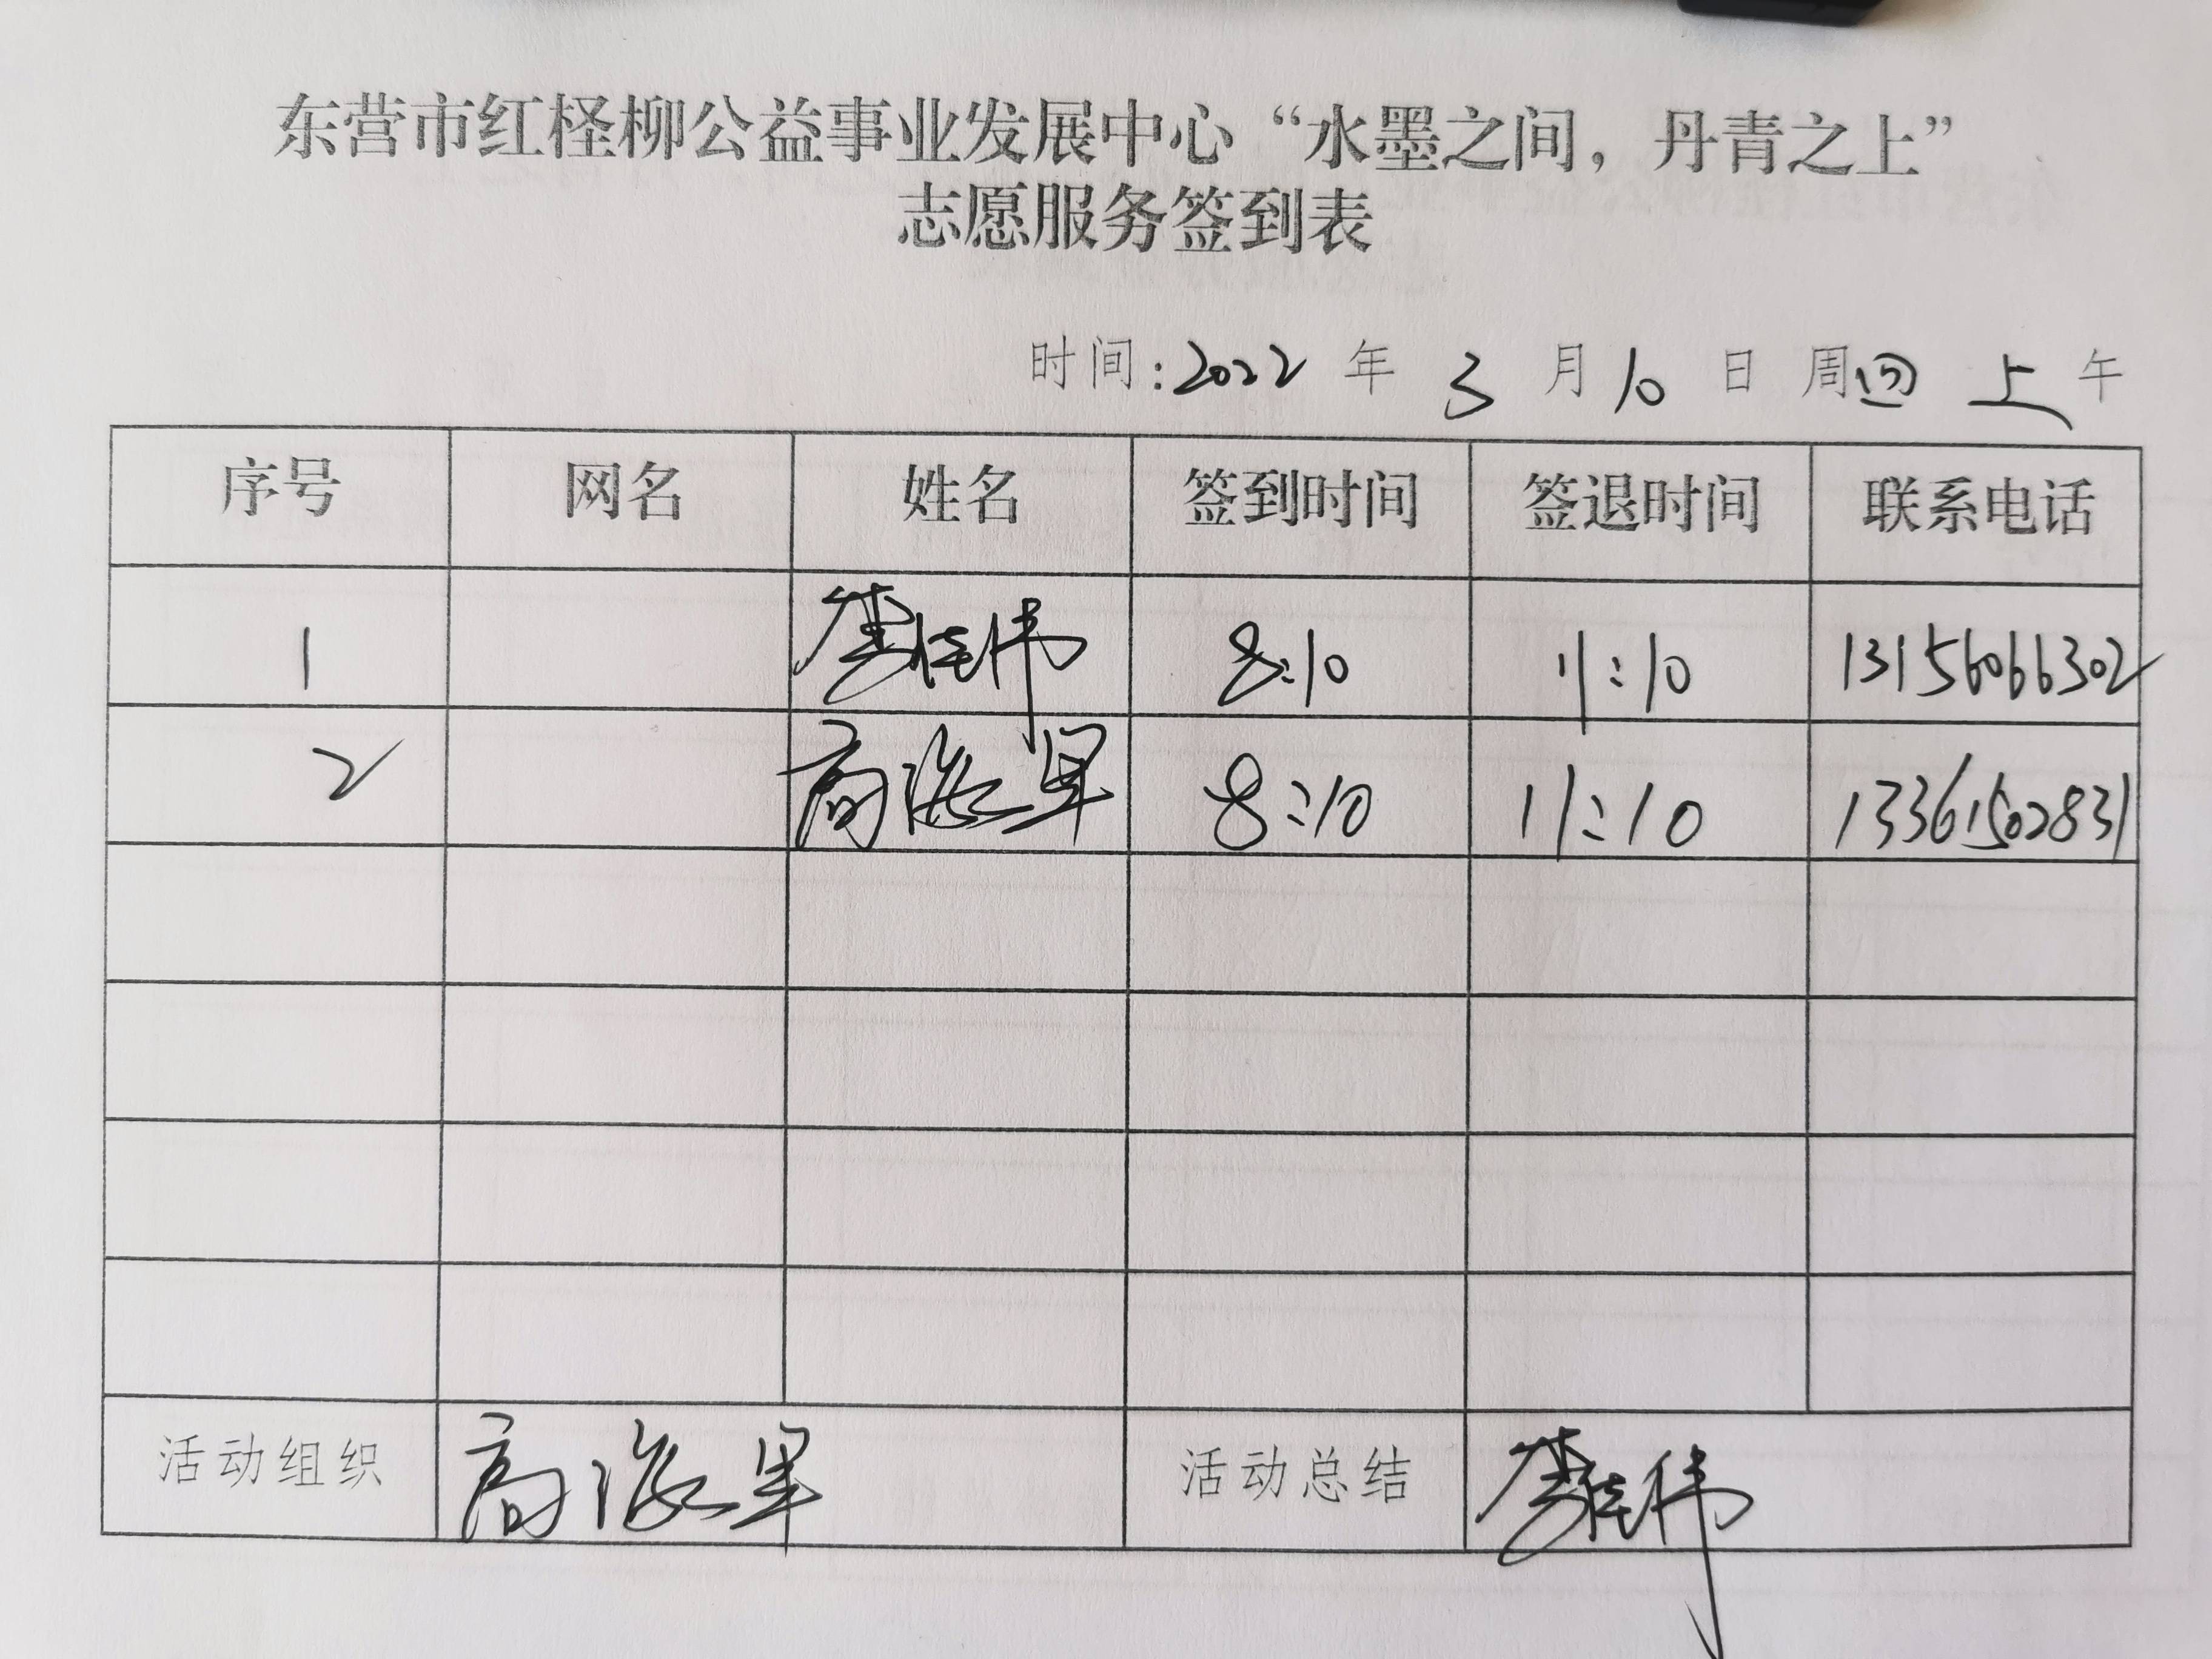 东营市红柽柳公益事业发展中心“水墨之间，丹青之上”
志愿服务签到表
时间:2022 年 3 月 10 日 周四 上午
序号 网名 姓名 签到时间 签退时间 联系电话
1 8:10 11:10 13156066302
2 高海军 8:10 11:10 13361502831
活动组织 高海军 活动总结